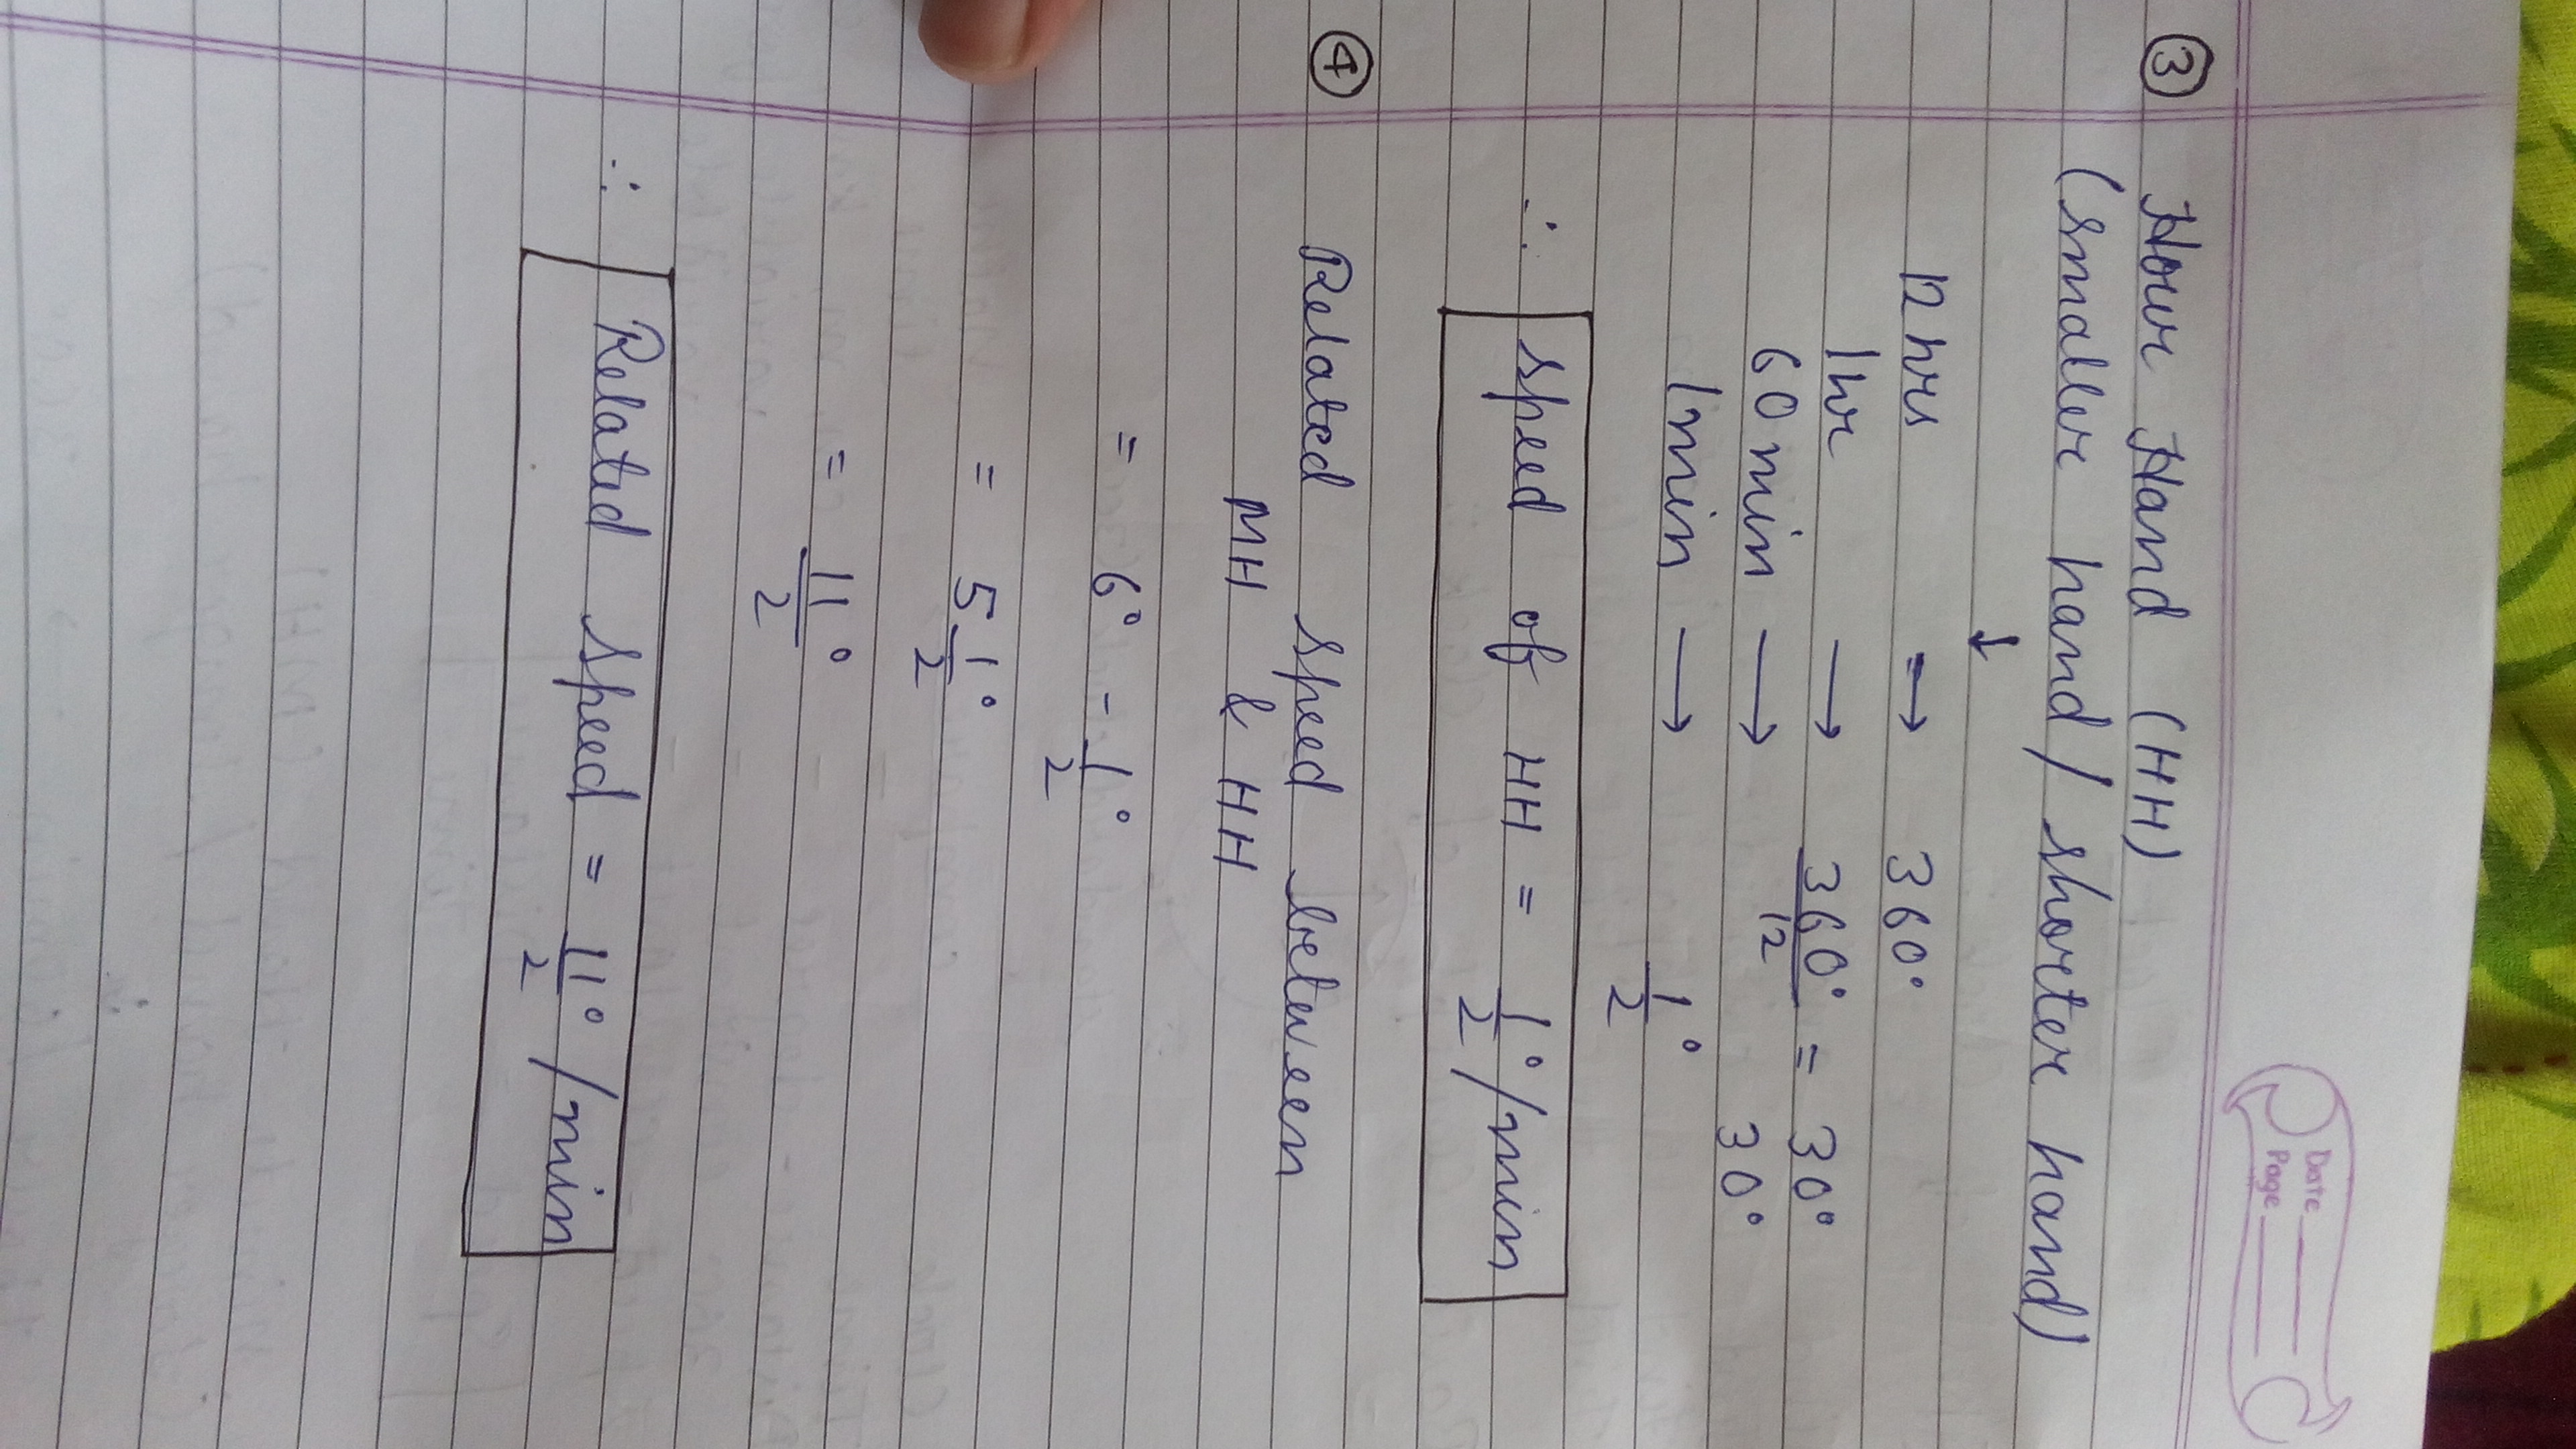 Date
Page
③ Hour Hand (HH)
(smaller hand / shorter hand)
↓
12 hrs → 360°
1hr → 360°/12 = 30°
60 min → 30°
1min → 1/2°
∴ speed of HH = 1/2°/min
④ Related speed between
MH & HH
= 6° - 1/2°
= 5 1/2°
= 11/2°
∴ Related speed = 11/2°/min